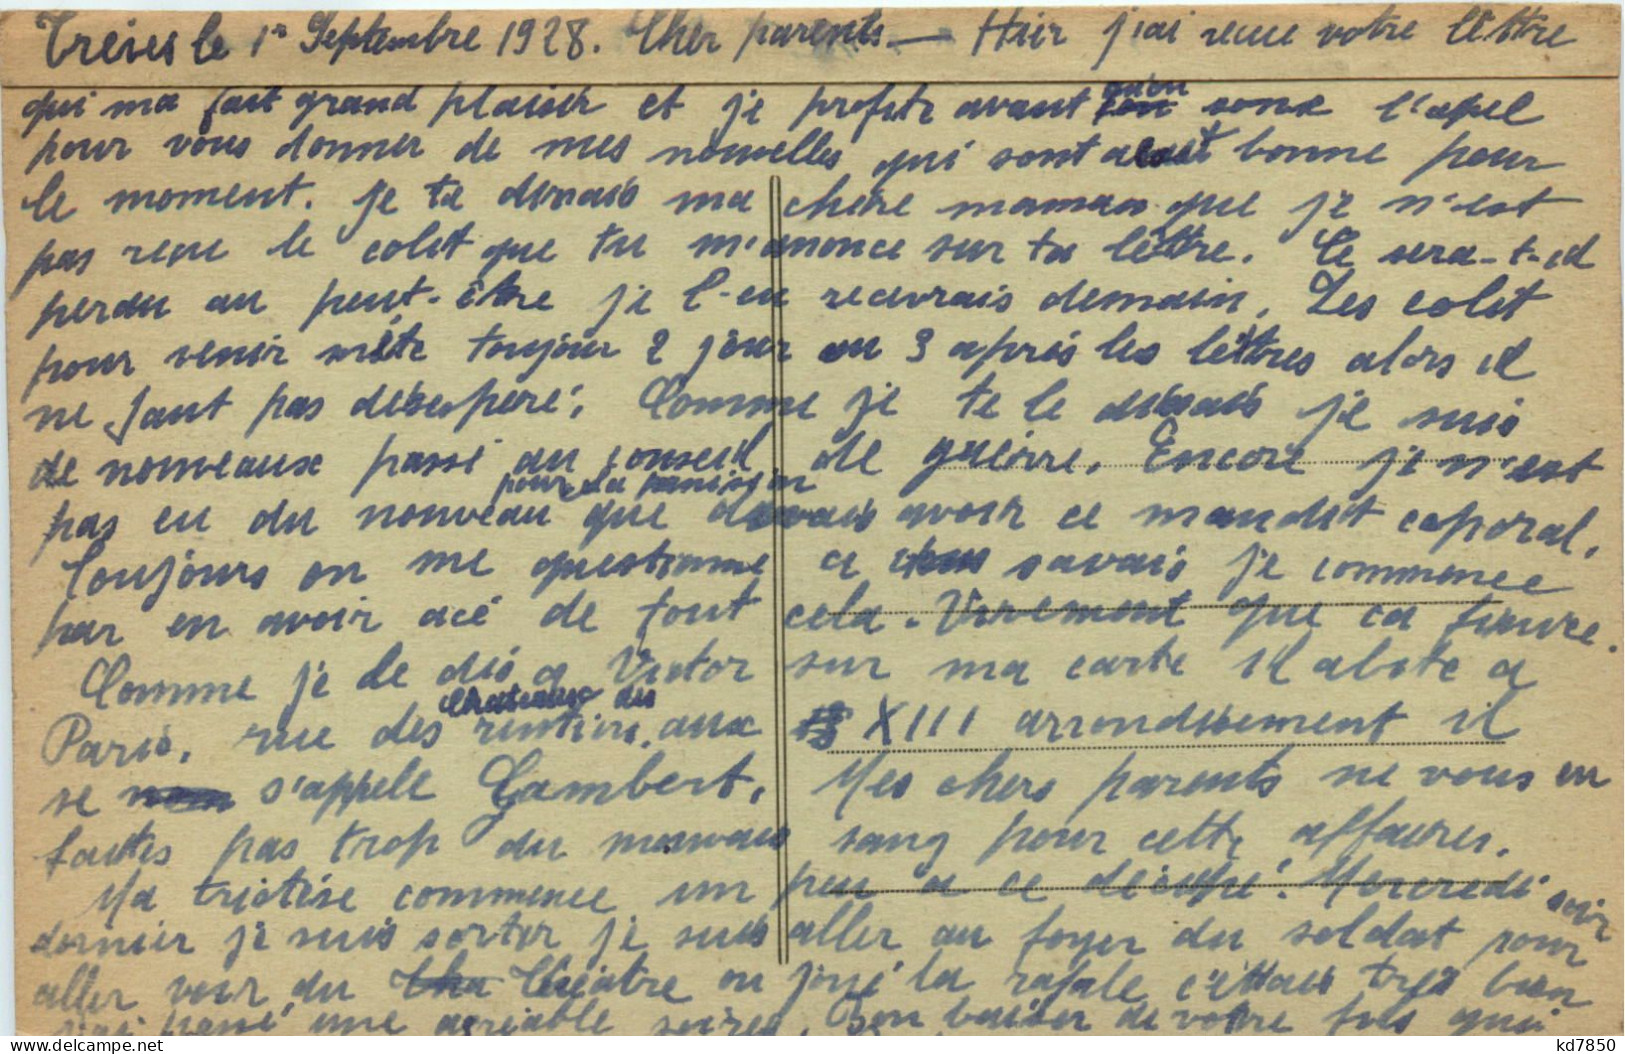 Trèves le 1r Septembre 1928. Cher parents — Hier j'ai reçue votre lettre
qui ma fait grand plaisir et je profite avant qu'on sone l'apel
pour vous donner de mes nouvelles qui sont bonne pour
le moment. je te dirais ma chère maman que je n'est
pas reçu le colit que tu m'anonce sur ta lettre. Ce sera-t-il
perdu au peut-être je l-en recevrais demain. Les colit
pour venir mète toujour 2 jour ou 3 après les lettres alors il
ne faut pas déseperé. Comme je te le disais je suis
de nouveaux passé au conseil de guèrre. Encore je n'est
pour la punission
pas eu du nouveau que devais avoir ce maudit caporal.
Toujours on me questionne ce savais je commence
par en avoir acé de tout cela. Virement que ca finire.
Comme je le dis a Victor sur ma carte il abite a
chateaux des
Paris, rue des rentiers. aux XIII arrondisement il
se s'appele Gambert. Mes chers parents ne vous en
faites pas trop du mauvais sang pour cette affaires.
Ma tristèse commence un peu a ce décipé. Mercredi soir
dernier je suis sorter je suis aller au foyer du soldat pour
aller voir du théatre on joué la rafale c'ettais très bien
j'ai passé une agréable soirée. Bon baiser de votre fils qui
kd7850